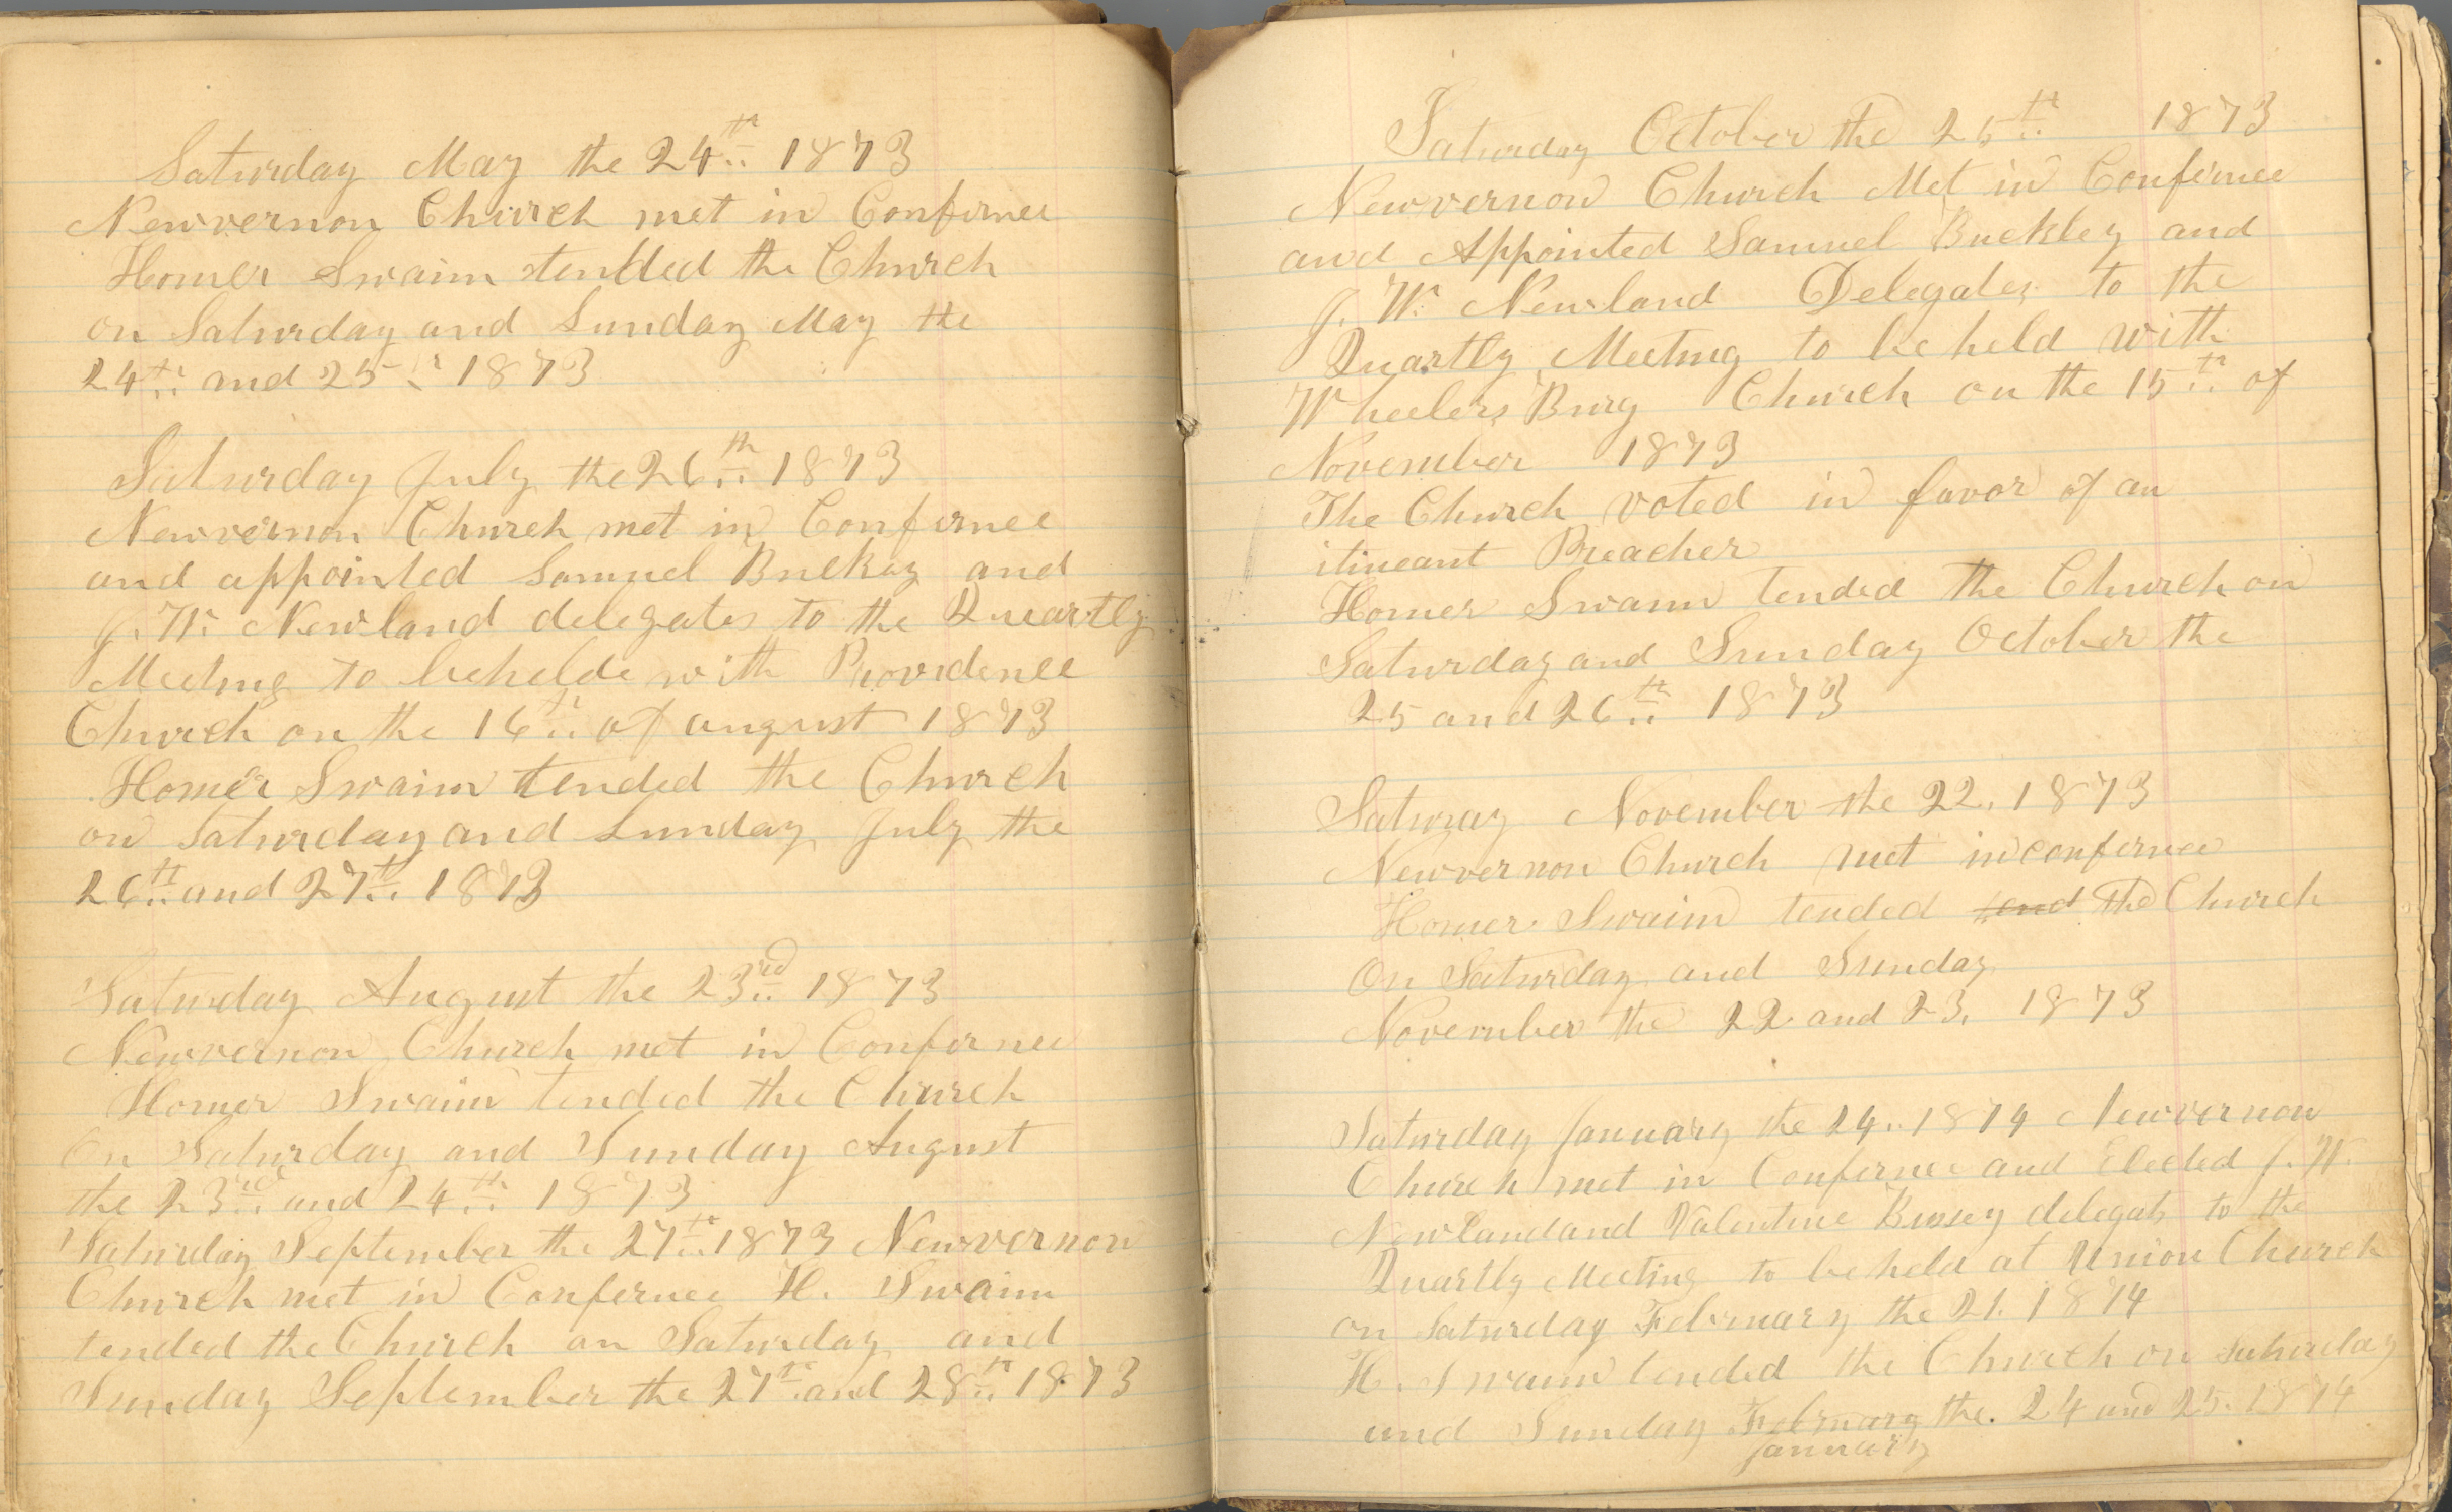 Saturday May the 24th 1873
Newvernon Church met in Confernce
Homer Swaim tended the Church
on Saturday and Sunday May the
24th and 25th 1873
Saturday July the 26th 1873
Newvernon Church met in Confernce
and appointed Samuel Buckley and
J. W. Newland delegates to the Quartly
Meeting to beheld with Providence
Church on the 16th of august 1873
Homer Swaim tended the Church
on Saturday and Sunday July the
26th and 27th 1873
Saturday August the 23rd 1873
Newvernon Church met in Confernce
Homer Swaim tended the Church
On Saturday and Sunday August
the 23rd and 24th 1873
Saturday September the 27th 1873 Newvernon
Church met in Confernce H. Swaim
tended the Church on Saturday and
Sunday September the 27th and 28th 1873
Saturday October the 25th 1873
Newvernon Church Met in Confernce
and Appointed Samuel Buckley and
J. W. Newland Delegates to the
Quartly Meeting to be held with
Wheelers Burg Church on the 15th of
November 1873
The Church voted in favor of an
itineant Preacher
Homer Swaim tended the Church on
Saturday and Sunday October the
25 and 26th 1873
Saturay November the 22. 1873
Newvernon Church met in confernce
Homer Swaim tended tend the Church
On Saturday and Sunday
November the 22 and 23. 1873
Saturday January the 24.. 1874 Newvernon
Church met in Confernce and Elected J. W.
Newland and Valentine Bussey delegats to the
Quartly Meeting to be held at Union Church
on Saturday February the 21. 1874
H. Swaim tended the Church on Saturday
and Sunday February the. 24 and 25. 1874
January